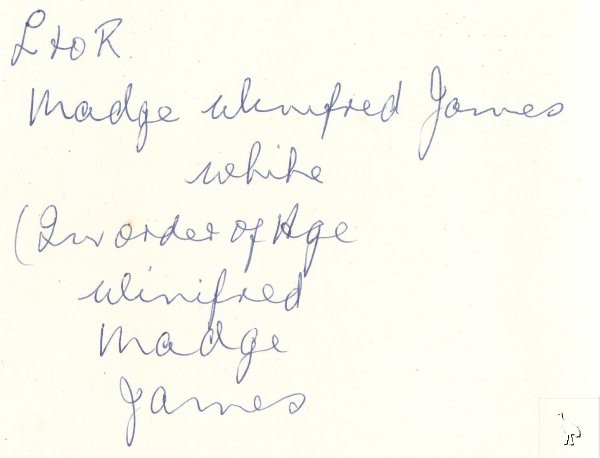 L to R.
Madge Winifred James
White
(In order of Age
Winifred
Madge
James